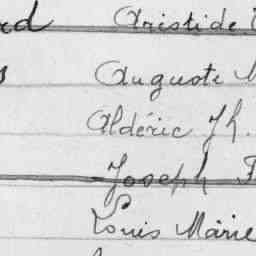 Aristide
Auguste
Aldéric Jh.
Joseph
Louis Marie